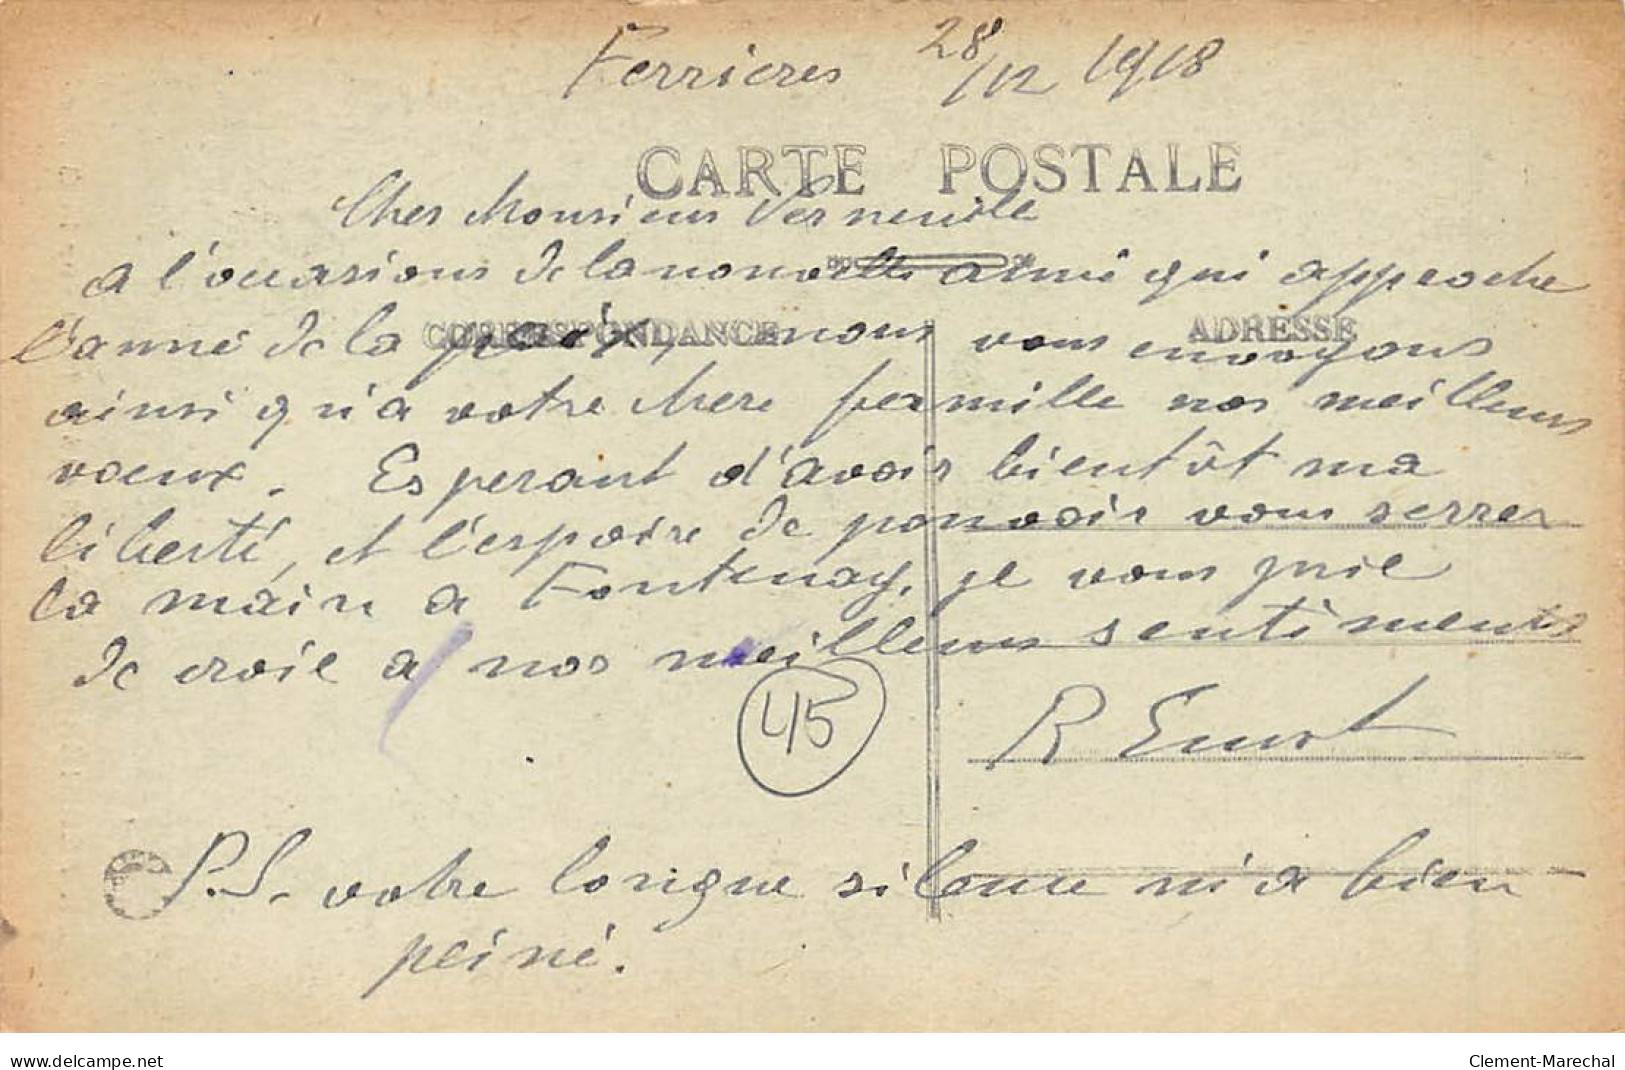 Ferrieres 28/12 1918
CARTE POSTALE
Cher Monsieur Verneuille
a l'occasions de la nouvelle anné qui approche
CORRESPONDANCE
ADRESSE
l'anné de la paix, nous vous envoyons
ainsi qu'a votre chere famille nos meilleurs
voeux. Esperant d'avoir bientôt ma
liberté, et l'espoire de pouvoir vous serrer
la main a Fontenay, je vous prie
de croie a nos meilleurs sentiments
45
R Ernst
P.S. votre longue silence m'a bien
peiné.
www.delcampe.net
Clement-Marechal